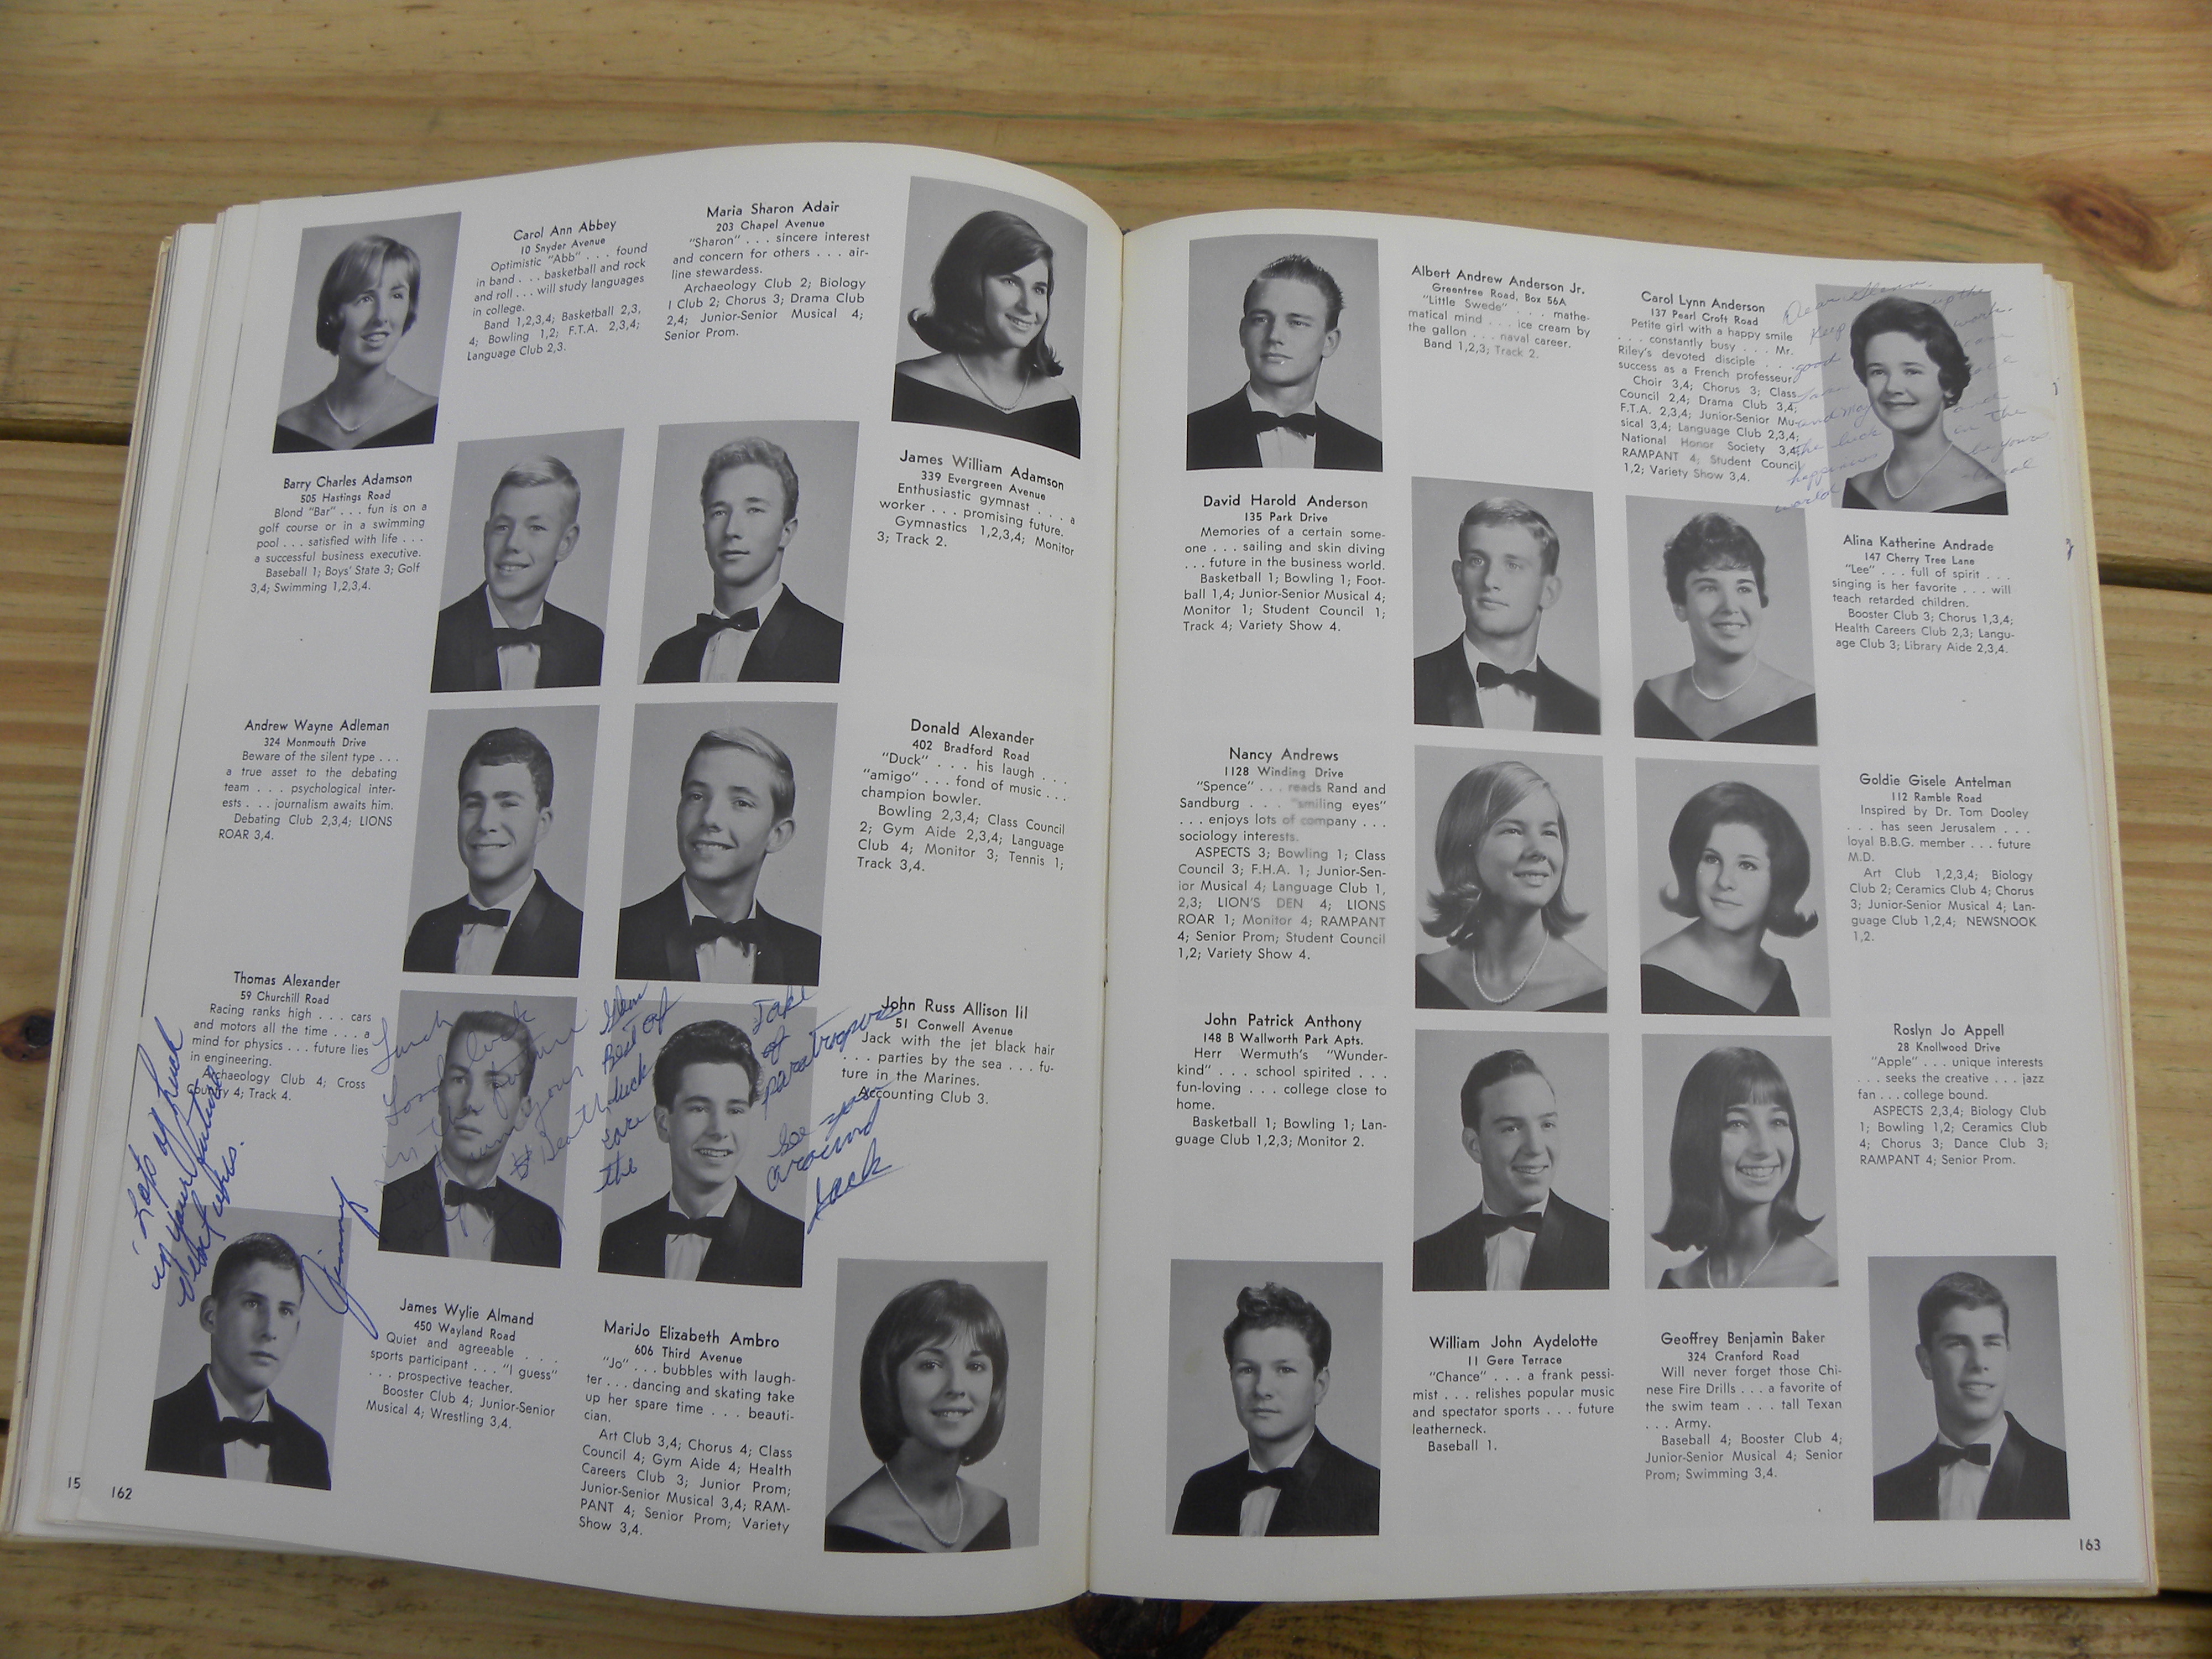 Carol Ann Abbey
10 Snyder Avenue
Optimistic "Abb" . . . found
in band . . . basketball and rock
and roll . . . will study languages
in college.
Band 1,2,3,4; Basketball 2,3,
4; Bowling 1,2; F.T.A. 2,3,4;
Language Club 2,3.
Maria Sharon Adair
203 Chapel Avenue
"Sharon" . . . sincere interest
and concern for others . . . air-
line stewardess.
Archaeology Club 2; Biology
I Club 2; Chorus 3; Drama Club
2,4; Junior-Senior Musical 4;
Senior Prom.
Barry Charles Adamson
505 Hastings Road
Blond "Bar" . . . fun is on a
golf course or in a swimming
pool . . . satisfied with life . . .
a successful business executive.
Baseball 1; Boys' State 3; Golf
3,4; Swimming 1,2,3,4.
James William Adamson
339 Evergreen Avenue
Enthusiastic gymnast . . . a
worker . . . promising future.
Gymnastics 1,2,3,4; Monitor
3; Track 2.
Andrew Wayne Adleman
324 Monmouth Drive
Beware of the silent type . . .
a true asset to the debating
team . . . psychological inter-
ests . . . journalism awaits him.
Debating Club 2,3,4; LIONS
ROAR 3,4.
Donald Alexander
402 Bradford Road
"Duck" . . . his laugh . . .
"amigo" . . . fond of music . . .
champion bowler.
Bowling 2,3,4; Class Council
2; Gym Aide 2,3,4; Language
Club 4; Monitor 3; Tennis 1;
Track 3,4.
Thomas Alexander
59 Churchill Road
Racing ranks high . . . cars
and motors all the time . . . a
mind for physics . . . future lies
in engineering.
Archaeology Club 4; Cross
Country 4; Track 4.
John Russ Allison III
51 Conwell Avenue
Jack with the jet black hair
. . . parties by the sea . . . fu-
ture in the Marines.
Accounting Club 3.
Lots of luck
in your future
Best wishes.
Jimmy
Good luck
in the future
Glenn
Best of
luck
the
Take
of
paratroopers
See you
around
Jack
James Wylie Almand
450 Wayland Road
Quiet and agreeable . . .
sports participant . . . "I guess"
. . . prospective teacher.
Booster Club 4; Junior-Senior
Musical 4; Wrestling 3,4.
MariJo Elizabeth Ambro
606 Third Avenue
"Jo" . . . bubbles with laugh-
ter . . . dancing and skating take
up her spare time . . . beauti-
cian.
Art Club 3,4; Chorus 4; Class
Council 4; Gym Aide 4; Health
Careers Club 3; Junior Prom;
Junior-Senior Musical 3,4; RAM-
PANT 4; Senior Prom; Variety
Show 3,4.
15
162
Albert Andrew Anderson Jr.
Greentree Road, Box 56A
"Little Swede" . . . mathe-
matical mind . . . ice cream by
the gallon . . . naval career.
Band 1,2,3; Track 2.
Carol Lynn Anderson
137 Pearl Croft Road
Petite girl with a happy smile
. . . constantly busy . . . Mr.
Riley's devoted disciple . . .
success as a French professeur.
Choir 3,4; Chorus 3; Class
Council 2,4; Drama Club 3,4;
F.T.A. 2,3,4; Junior-Senior Mu-
sical 3,4; Language Club 2,3,4;
National Honor Society 3,4;
RAMPANT 4; Student Council
1,2; Variety Show 3,4.
Dear Glenn,
Keep up the
good work.
Take care
and may
the luck and
happiness in the
world be yours
Carol
David Harold Anderson
135 Park Drive
Memories of a certain some-
one . . . sailing and skin diving
. . . future in the business world.
Basketball 1; Bowling 1; Foot-
ball 1,4; Junior-Senior Musical 4;
Monitor 1; Student Council 1;
Track 4; Variety Show 4.
Alina Katherine Andrade
147 Cherry Tree Lane
"Lee" . . . full of spirit . . .
singing is her favorite . . . will
teach retarded children.
Booster Club 3; Chorus 1,3,4;
Health Careers Club 2,3; Langu-
age Club 3; Library Aide 2,3,4.
Nancy Andrews
1128 Winding Drive
"Spence" . . . reads Rand and
Sandburg . . . "smiling eyes"
. . . enjoys lots of company . . .
sociology interests.
ASPECTS 3; Bowling 1; Class
Council 3; F.H.A. 1; Junior-Sen-
ior Musical 4; Language Club 1,
2,3; LION'S DEN 4; LIONS
ROAR 1; Monitor 4; RAMPANT
4; Senior Prom; Student Council
1,2; Variety Show 4.
Goldie Gisele Antelman
112 Ramble Road
Inspired by Dr. Tom Dooley
. . . has seen Jerusalem . . .
loyal B.B.G. member . . . future
M.D.
Art Club 1,2,3,4; Biology
Club 2; Ceramics Club 4; Chorus
3; Junior-Senior Musical 4; Lan-
guage Club 1,2,4; NEWSNOOK
1,2.
John Patrick Anthony
148 B Wallworth Park Apts.
Herr Wermuth's "Wunder-
kind" . . . school spirited . . .
fun-loving . . . college close to
home.
Basketball 1; Bowling 1; Lan-
guage Club 1,2,3; Monitor 2.
Roslyn Jo Appell
28 Knollwood Drive
"Apple" . . . unique interests
. . . seeks the creative . . . jazz
fan . . . college bound.
ASPECTS 2,3,4; Biology Club
1; Bowling 1,2; Ceramics Club
4; Chorus 3; Dance Club 3;
RAMPANT 4; Senior Prom.
William John Aydelotte
11 Gere Terrace
"Chance" . . . a frank pessi-
mist . . . relishes popular music
and spectator sports . . . future
leatherneck.
Baseball 1.
Geoffrey Benjamin Baker
324 Cranford Road
Will never forget those Chi-
nese Fire Drills . . . a favorite of
the swim team . . . tall Texan
. . . Army.
Baseball 4; Booster Club 4;
Junior-Senior Musical 4; Senior
Prom; Swimming 3,4.
163